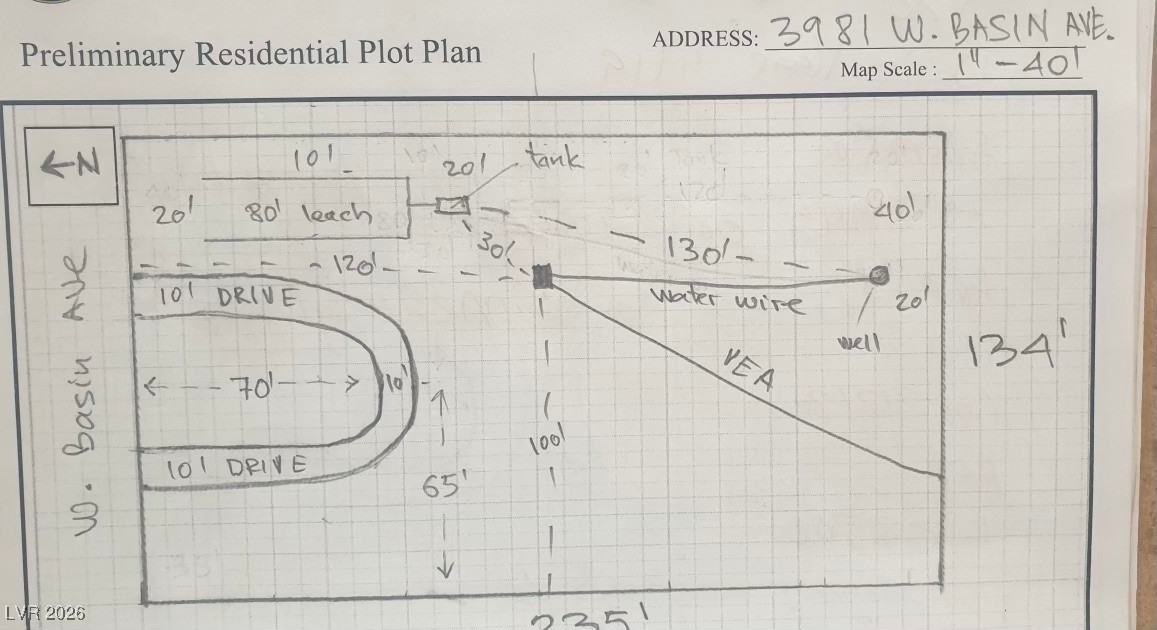 Preliminary Residential Plot Plan
ADDRESS: 3981 W. BASIN AVE.
Map Scale : 1" - 40'
←N
W. Basin AVE
10'
20'
tank
20'
80' leach
40'
30'
130'
120'
10' DRIVE
water wire
20'
well
134'
VEA
70'
10'
100'
10' DRIVE
65'
235'
LVR 2026